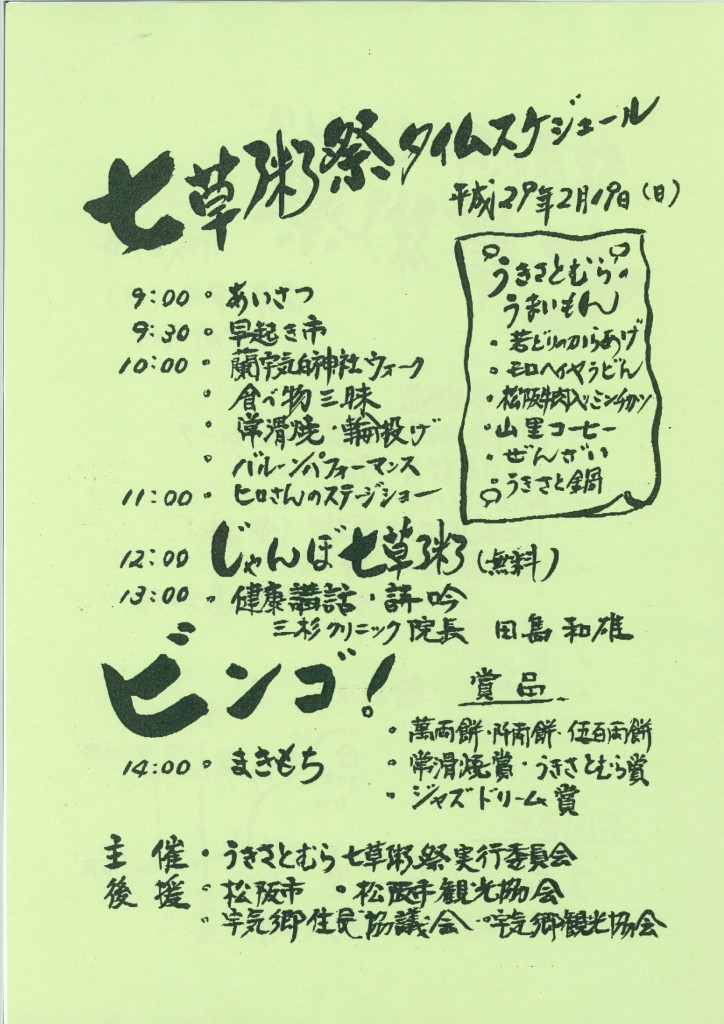 七草粥祭タイムスケジュール
平成29年2月19日(日)
9:00・あいさつ
9:30・早起き市
10:00・蘭宇気白神社ウォーク
・食べ物三昧
・常滑焼・輪投げ
・バルーンパフォーマンス
11:00・ヒロさんのステージショー
うきさとむら
うまいもん
・若どりのからあげ
・モロヘイヤうどん
・松阪牛肉入ミンチカツ
・山里コーヒー
・ぜんざい
・うきさと鍋
12:00 じゃんぼ七草粥(無料)
13:00・健康講話・詩吟
三杉クリニック院長 田島和雄
ビンゴ!
賞品
・萬両餅・阡両餅・伍百両餅
・常滑焼賞・うきさとむら賞
・ジャズドリーム賞
14:00・まきもち
主催・うきさとむら七草粥祭実行委員会
後援・松阪市 ・松阪市観光協会
・宇気郷住民協議会・宇気郷観光協会